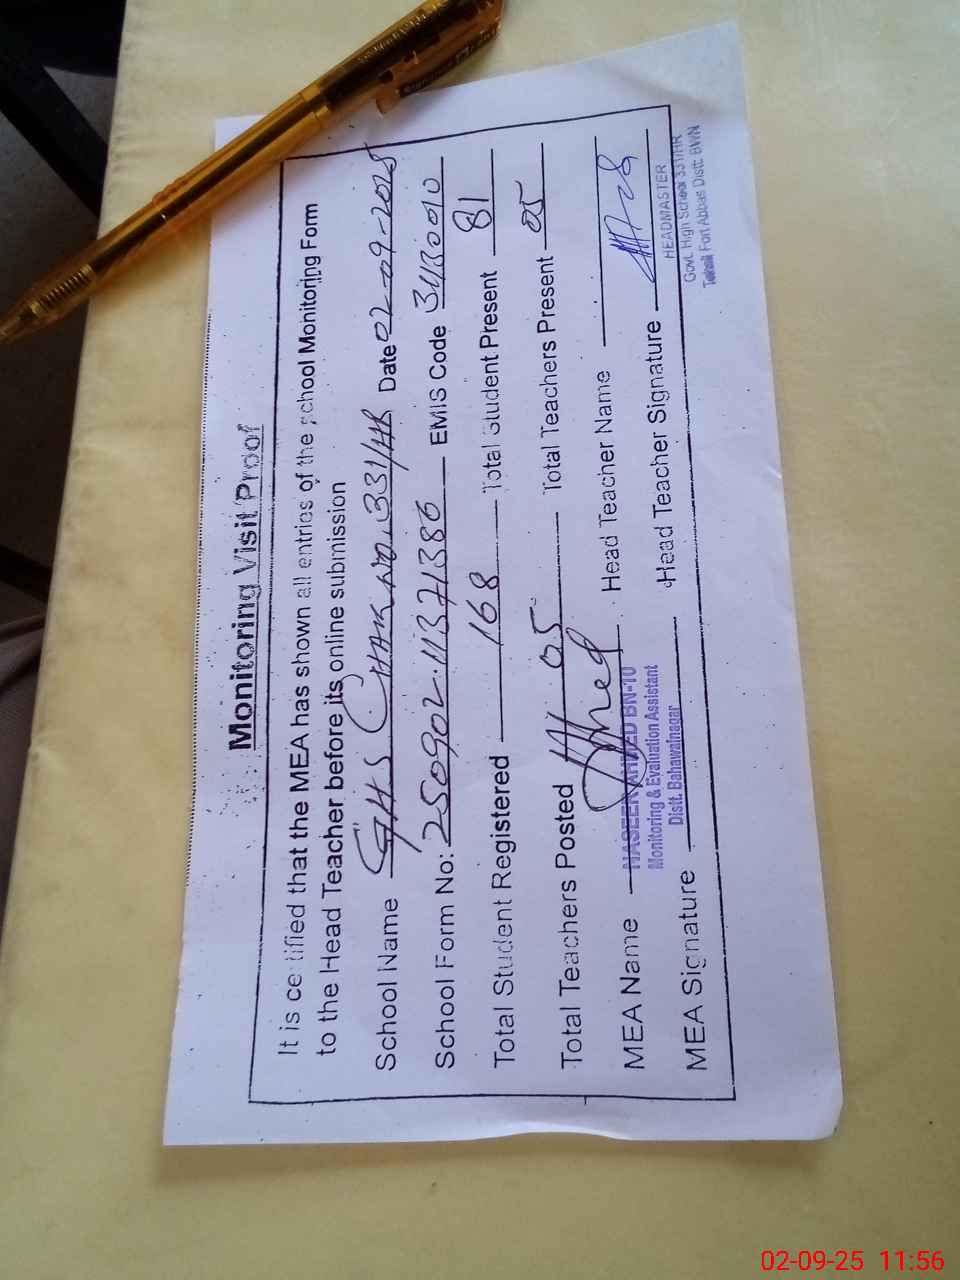 Monitoring Visit Proof
It is certified that the MEA has shown all entries of the school Monitoring Form
to the Head Teacher before its online submission
School Name GHS CHAK NO. 331/HR Date 02-09-2025
School Form No: 250902.11371386 EMIS Code 31130090
Total Student Registered 168 Total Student Present 81
Total Teachers Posted 05 Total Teachers Present 05
MEA Name NASEER AHMED BN-10 Head Teacher Name
Monitoring & Evaluation Assistant
Distt. Bahawalnagar
MEA Signature Head Teacher Signature
HEADMASTER
Govt. High School 331/HR
Tehsil Fort Abbas Distt. BWN
02-09-25 11:56